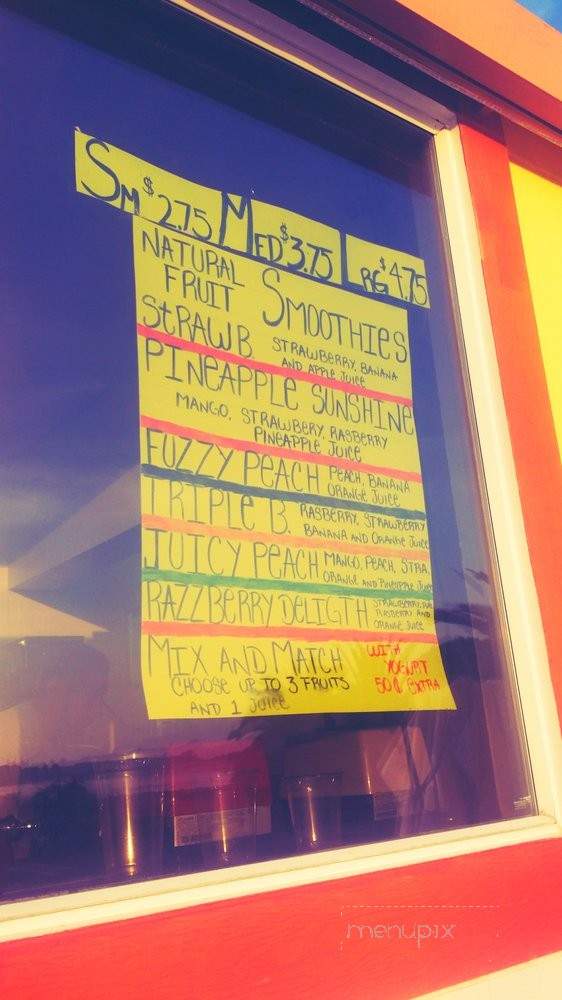 Sm $2.75 MED $3.75 LRG $4.75
NATURAL FRUIT SMOOTHIES
STRAW B. STRAWBERRY, BANANA
AND APPLE JUICE
PINEAPPLE SUNSHINE
MANGO, STRAWBERY, RASBERRY
PINEAPPLE JUICE
FUZZY PEACH PEACH, BANANA
ORANGE JUICE
TRIPLE B. RASBERRY, STRAWBERRY
BANANA AND ORANGE JUICE
JUICY PEACH MANGO, PEACH, STRA.
ORANGE AND PINEAPPLE JUICE
RAZZBERRY DELIGTH STRAWBERRY,
RASBERRY AND
ORANGE JUICE
MIX AND MATCH
CHOOSE UP TO 3 FRUITS
AND 1 JUICE
WITH
YOGURT
50¢ EXTRA
menupix